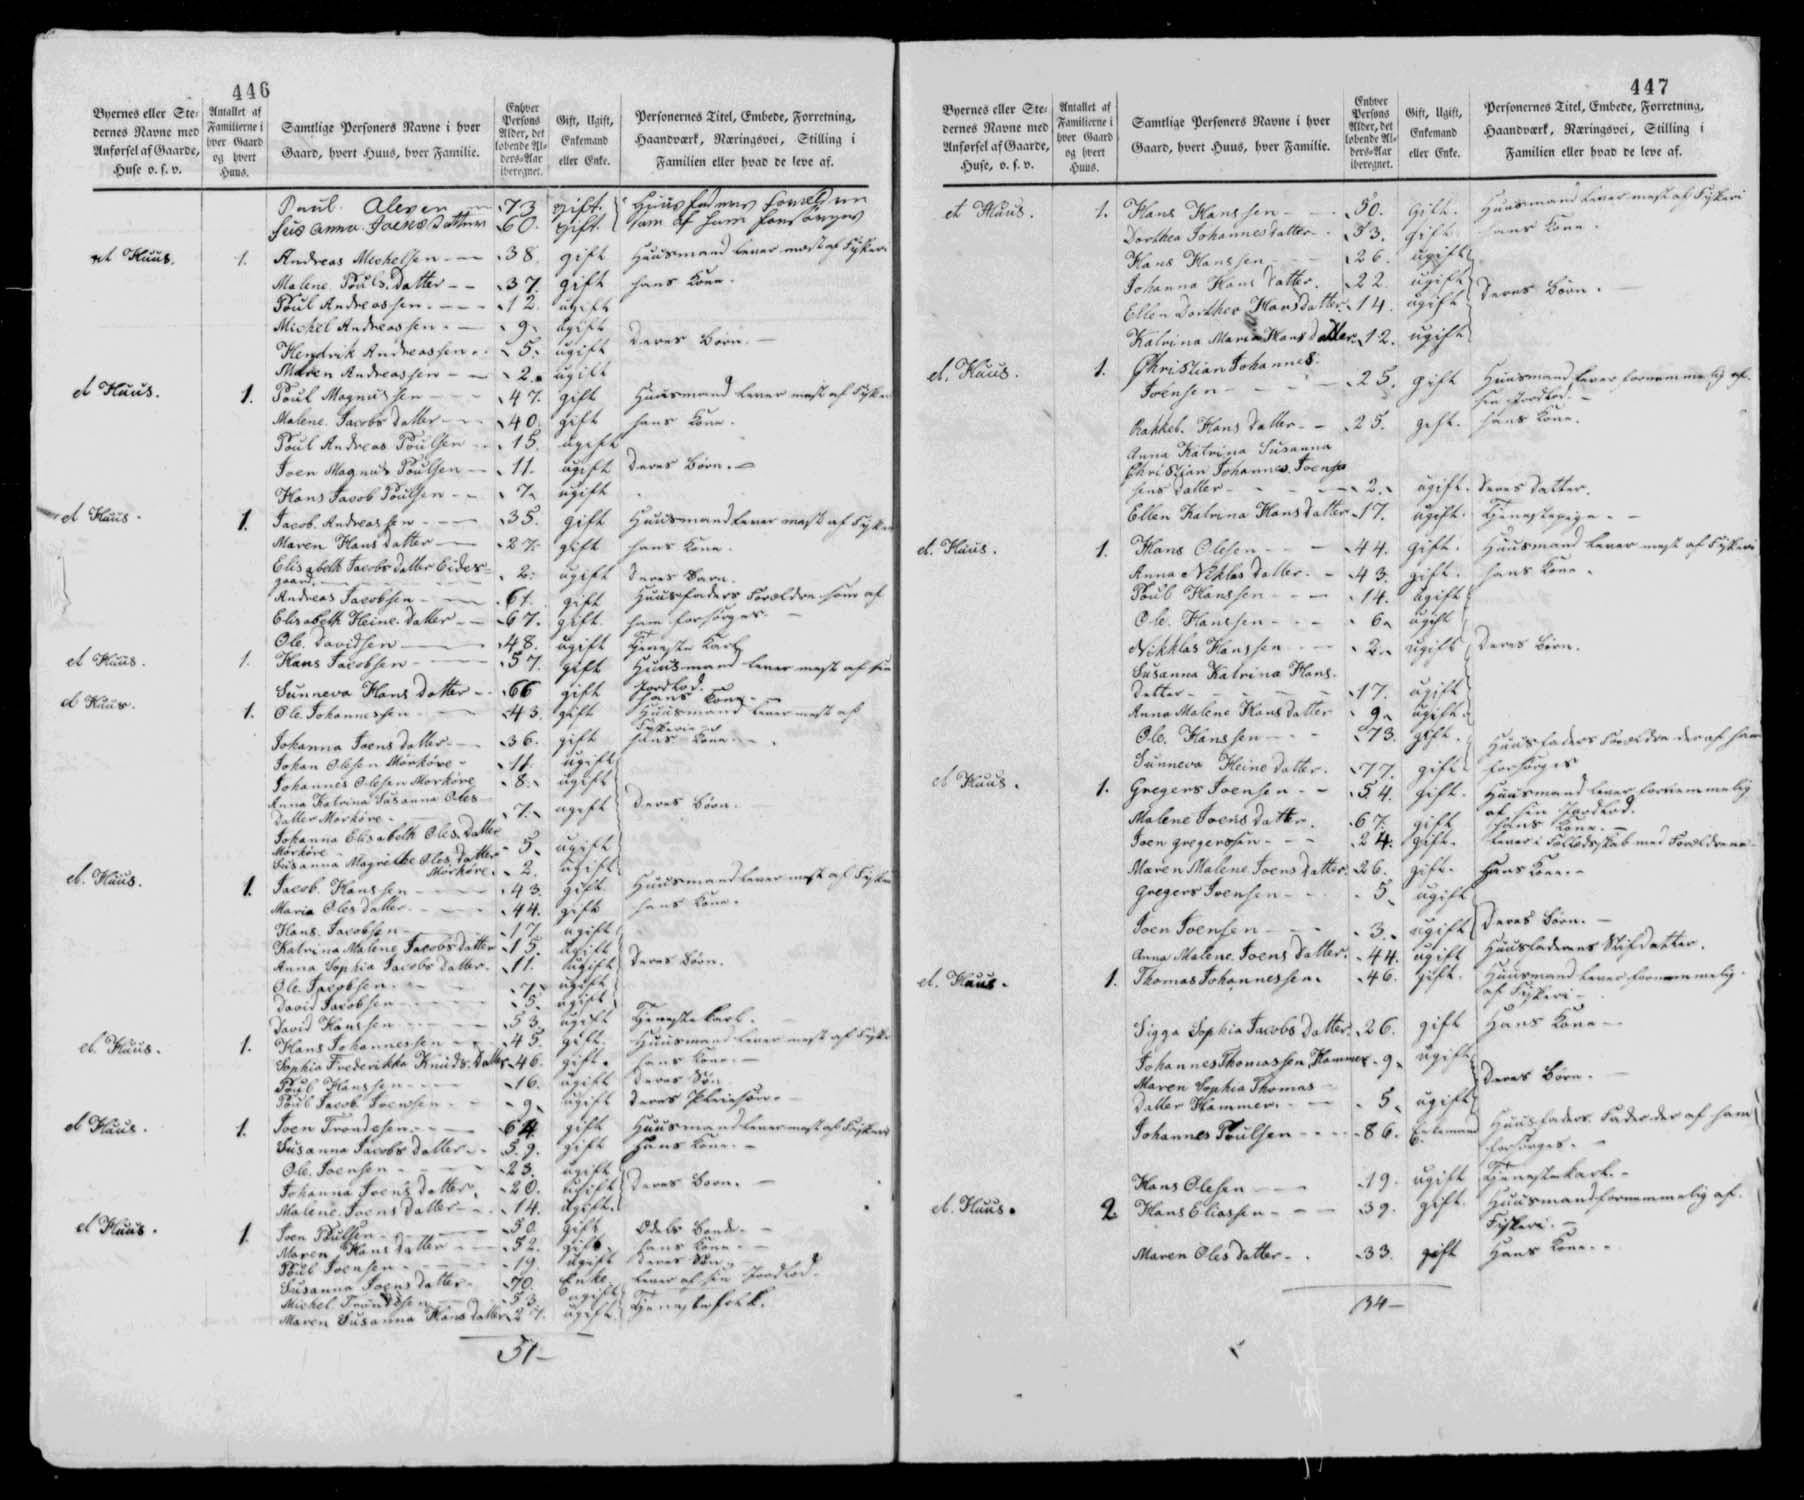 446
Byernes eller Ste-
dernes Navne med
Anførsel af Gaarde,
Huse o. s. v.
Antallet af
Familierne i
hver Gaard
og hvert
Huus.
Samtlige Personers Navne i hver
Gaard, hvert Huus, hver Familie.
Enhver
Persons
Alder, det
løbende Al-
ders-Aar
iberegnet.
Gift, Ugift,
Enkemand
eller Enke.
Personernes Titel, Embede, Forretning,
Haandværk, Næringsvei, Stilling i
Familien eller hvad de leve af.
Paul 73 gift Huusfaderens Forældre
Anna Joensdatter 60. gift. som af ham forsørges
et Huus. 1. Andreas Michelsen 38. gift Huusmand lever mest af Fiskeri
Malene Pouls Datter 37. gift hans Kone.
Poul Andreassen 12. ugift
Michel Andreassen 9. ugift
Hendrik Andreassen 5. ugift Deres Børn.
Maren Andreassen 2. ugift
et Huus. 1. Poul Magnussen 47. gift Huusmand lever mest af Fiskeri
Malene Jacobs datter 40. gift hans Kone.
Poul Andreas Poulsen 15. ugift
Joen Magnus Poulsen 11. ugift Deres Børn.
Hans Jacob Poulsen 7. ugift
et Huus. 1. Jacob Andreassen 35. gift Huusmand lever mest af Fiskeri
Maren Hans datter 27. gift hans Kone.
Elisabeth Jacobs datter Eides-
gaard. 2. ugift Deres Barn.
Andreas Jacobsen 61. gift Huusfaders Forældre som af
Elisabeth Heine datter 67. gift. ham forsørges.
Ole Davidsen 48. ugift Tjeneste Karl
et Huus. 1. Hans Jacobsen 57. gift Huusmand lever mest af sin
Jordlod.
Sunneva Hans datter 66 gift hans Kone
et Huus. 1. Ole Johannessen 43. gift Huusmand lever mest af
Fiskerie
Johanna Joens datter 36. gift hans Kone.
Johan Olesen Mörköre 11. ugift
Johannes Olesen Morköre 8. ugift
Anna Katrina Susanna Oles-
datter Morköre 7. ugift Deres Børn.
Johanna Elisabeth Oles datter
Mörköre 5. ugift
Susanna Magrethe Oles datter
Mörköre. 2. ugift
et Huus. 1. Jacob Hanssen 43. gift Huusmand lever mest af Fiskeri
Maria Oles datter 44. gift hans Kone.
Hans Jacobsen 17. ugift
Katrina Malene Jacobs datter 15. ugift
Anna Sophia Jacobs datter. 11. ugift Deres Børn.
Ole Jacobsen 7. ugift
David Jacobsen 5. ugift
David Hanssen 53. ugift Tjeneste karl.
et Huus. 1. Hans Johannessen 45. gift. Huusmand lever mest af Fiskeri
Sophia Frederikka Knuds Datter 46. gift. hans Kone.
Poul Hanssen 16. ugift deres Søn
Poul Jacob Joensen 9. ugift deres Pleiesøn.
et Huus. 1. Joen Trondesen 64 gift Huusmand lever mest af Fiskeri
Susanna Jacobs datter 59. gift Hans Kone.
Ole Joensen 23. ugift
Johanna Joens datter. 20. ugift Deres Born.
Malene Joens datter 14. ugift.
et Huus. 1. Joen Poulsen 50. gift Odels Bonde.
Maren Hans datter 52. gift hans Kone.
Poul Joensen 19. ugift deres Søn.
Susanna Joens datter 70. Enke lever af sin Jordlod.
Michel Trondesen 53. ugift
Maren Susanna Hans datter 27. ugift Tjenestefolk.
51
447
Byernes eller Ste-
dernes Navne med
Anførsel af Gaarde,
Huse, o. s. v.
Antallet af
Familierne i
hver Gaard
og hvert
Huus.
Samtlige Personers Navne i hver
Gaard, hvert Huus, hver Familie.
Enhver
Persons
Alder, det
løbende Al-
ders-Aar
iberegnet.
Gift, Ugift,
Enkemand
eller Enke.
Personernes Titel, Embede, Forretning,
Haandværk, Næringsvei, Stilling i
Familien eller hvad de leve af.
et Huus. 1. Hans Hanssen 50. Gift. Huusmand lever mest af Fiskeri
Dorthea Johannesdatter 53. gift hans Kone.
Hans Hanssen 26. ugift
Johanna Hans datter. 22. ugift
Ellen Dorthea Hansdatter. 14. ugift Deres Børn.
Katrina Maria Hans datter. 12. ugift
et. Huus. 1. Christian Johannes
Joensen 25. gift Huusmand lever fornemmelig af
sin Jordlod.
Rakkel Hans datter 25. gift. hans Kone.
Anna Katrina Susanna
Christian Johannes Joen-
sens datter 2. ugift. Deres datter.
Ellen Katrina Hansdatter 17. ugift. Tjenestepige.
et. Huus. 1. Hans Olesen 44. gift. Huusmand lever mest af Fiskeri
Anna Niklas datter. 43. gift. hans Kone.
Poul Hanssen 14. ugift
Ole Hanssen 6. ugift
Nikklas Hanssen 2. ugift Deres Børn.
Susanna Katrina Hans-
datter 17. ugift
Anna Malene Hans datter 9. ugift.
Ole Hanssen 73. gift. Huusfaders Forældre der af ham
Sunneva Heine datter. 77. gift forsørges
et Huus. 1. Gregers Joensen 54. gift. Huusmand lever fornemmelig
af sin Jordlod.
Malene Joens datter. 67. gift hans Kone.
Joen gregerssen 24. gift. lever i Fælledsskab med Forældrene
Maren Malene Joens datter. 26. gift. Hans Kone.
Gregers Joensen 5. ugift
Joen Joensen 3. ugift Deres Børn.
Anna Malene Joens datter. 44. ugift Huusfaderens Stifdatter.
et. Huus. 1. Thomas Johannessen. 46. gift. Huusmand lever fornemmelig
af Fiskeri
Sigga Sophia Jacobs datter. 26. gift Hans Kone
Johannes Thomassen Hammer 9. ugift
Maren Sophia Thomas Deres Børn.
datter Hammer. 5. ugift
Johannes Poulsen 86. Enkemand Huusfaders Fader der af ham
forsørges.
Hans Olesen 19. ugift Tjenestekarl.
et. Huus. 2. Hans Eliassen 39. gift Huusmand fornemmelig af
Fiskeri.
Maren Oles datter 33. gift Hans Kone.
34